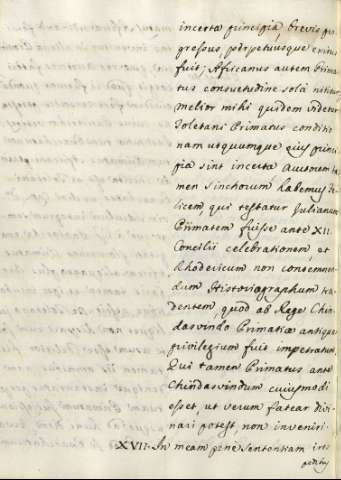 incerta principia brevis pro
gressus, perpetuusque exitus
fuit; Africanus autem Prima
tus consuetudine solâ nititur,
melior mihi quidem videtur
Toletani Primatus conditio
nam utquumque eius princi
pia sint incerta Auctorem ta
men sinchorum habemus Fe
licem, qui testatur Julianum
Primatem fuisse ante XII.
Concilii celebrationem, et
Rhodericum non contemnen
dum Historiographum tra
dentem, quod ab Rege Chin
dasvindo Primatiæ antiquæ
privilegium fuit impetratum
Qui tamen Primatus ante
Chindasvindum cuiusmodi
esset, ut verum fatear divi
nari potest, non inveniri.
XVII. In meam penè sententiam